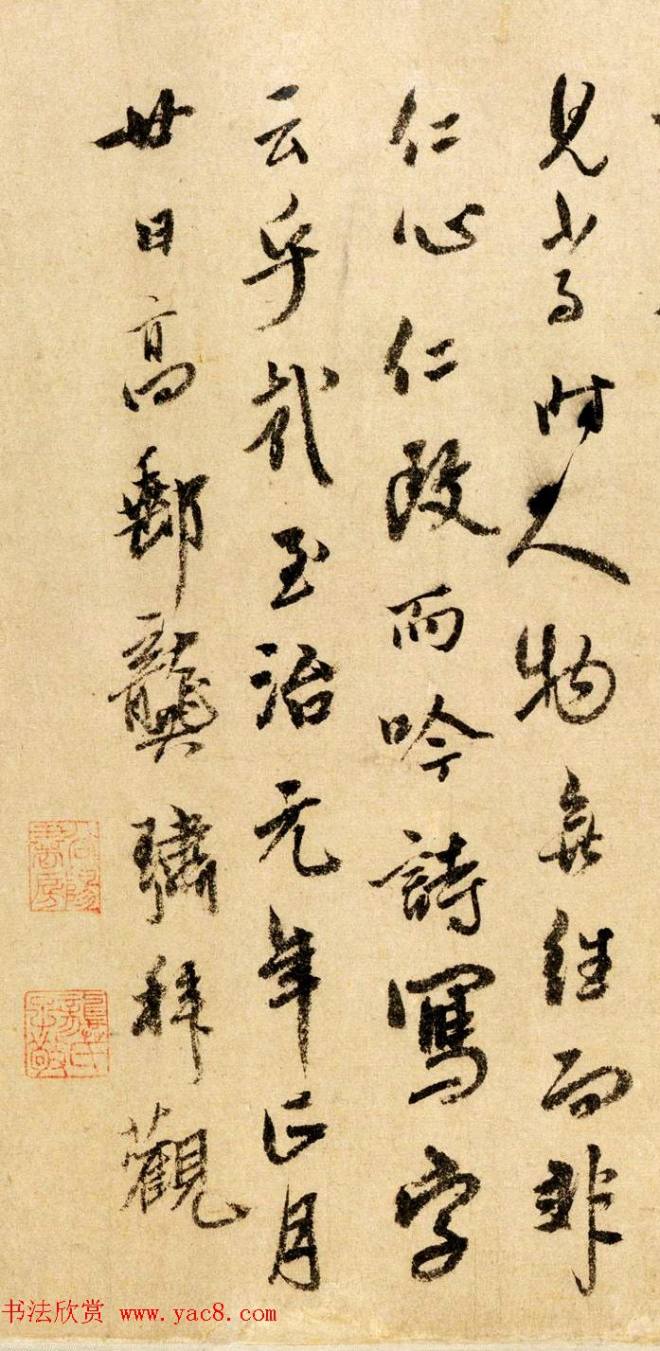 見當時人物無往而非
仁心仁政而吟詩寫字
云乎哉至治元年正月
廿日高郵龔璛拜觀
龔氏子敬
书法欣赏 www.yac8.com